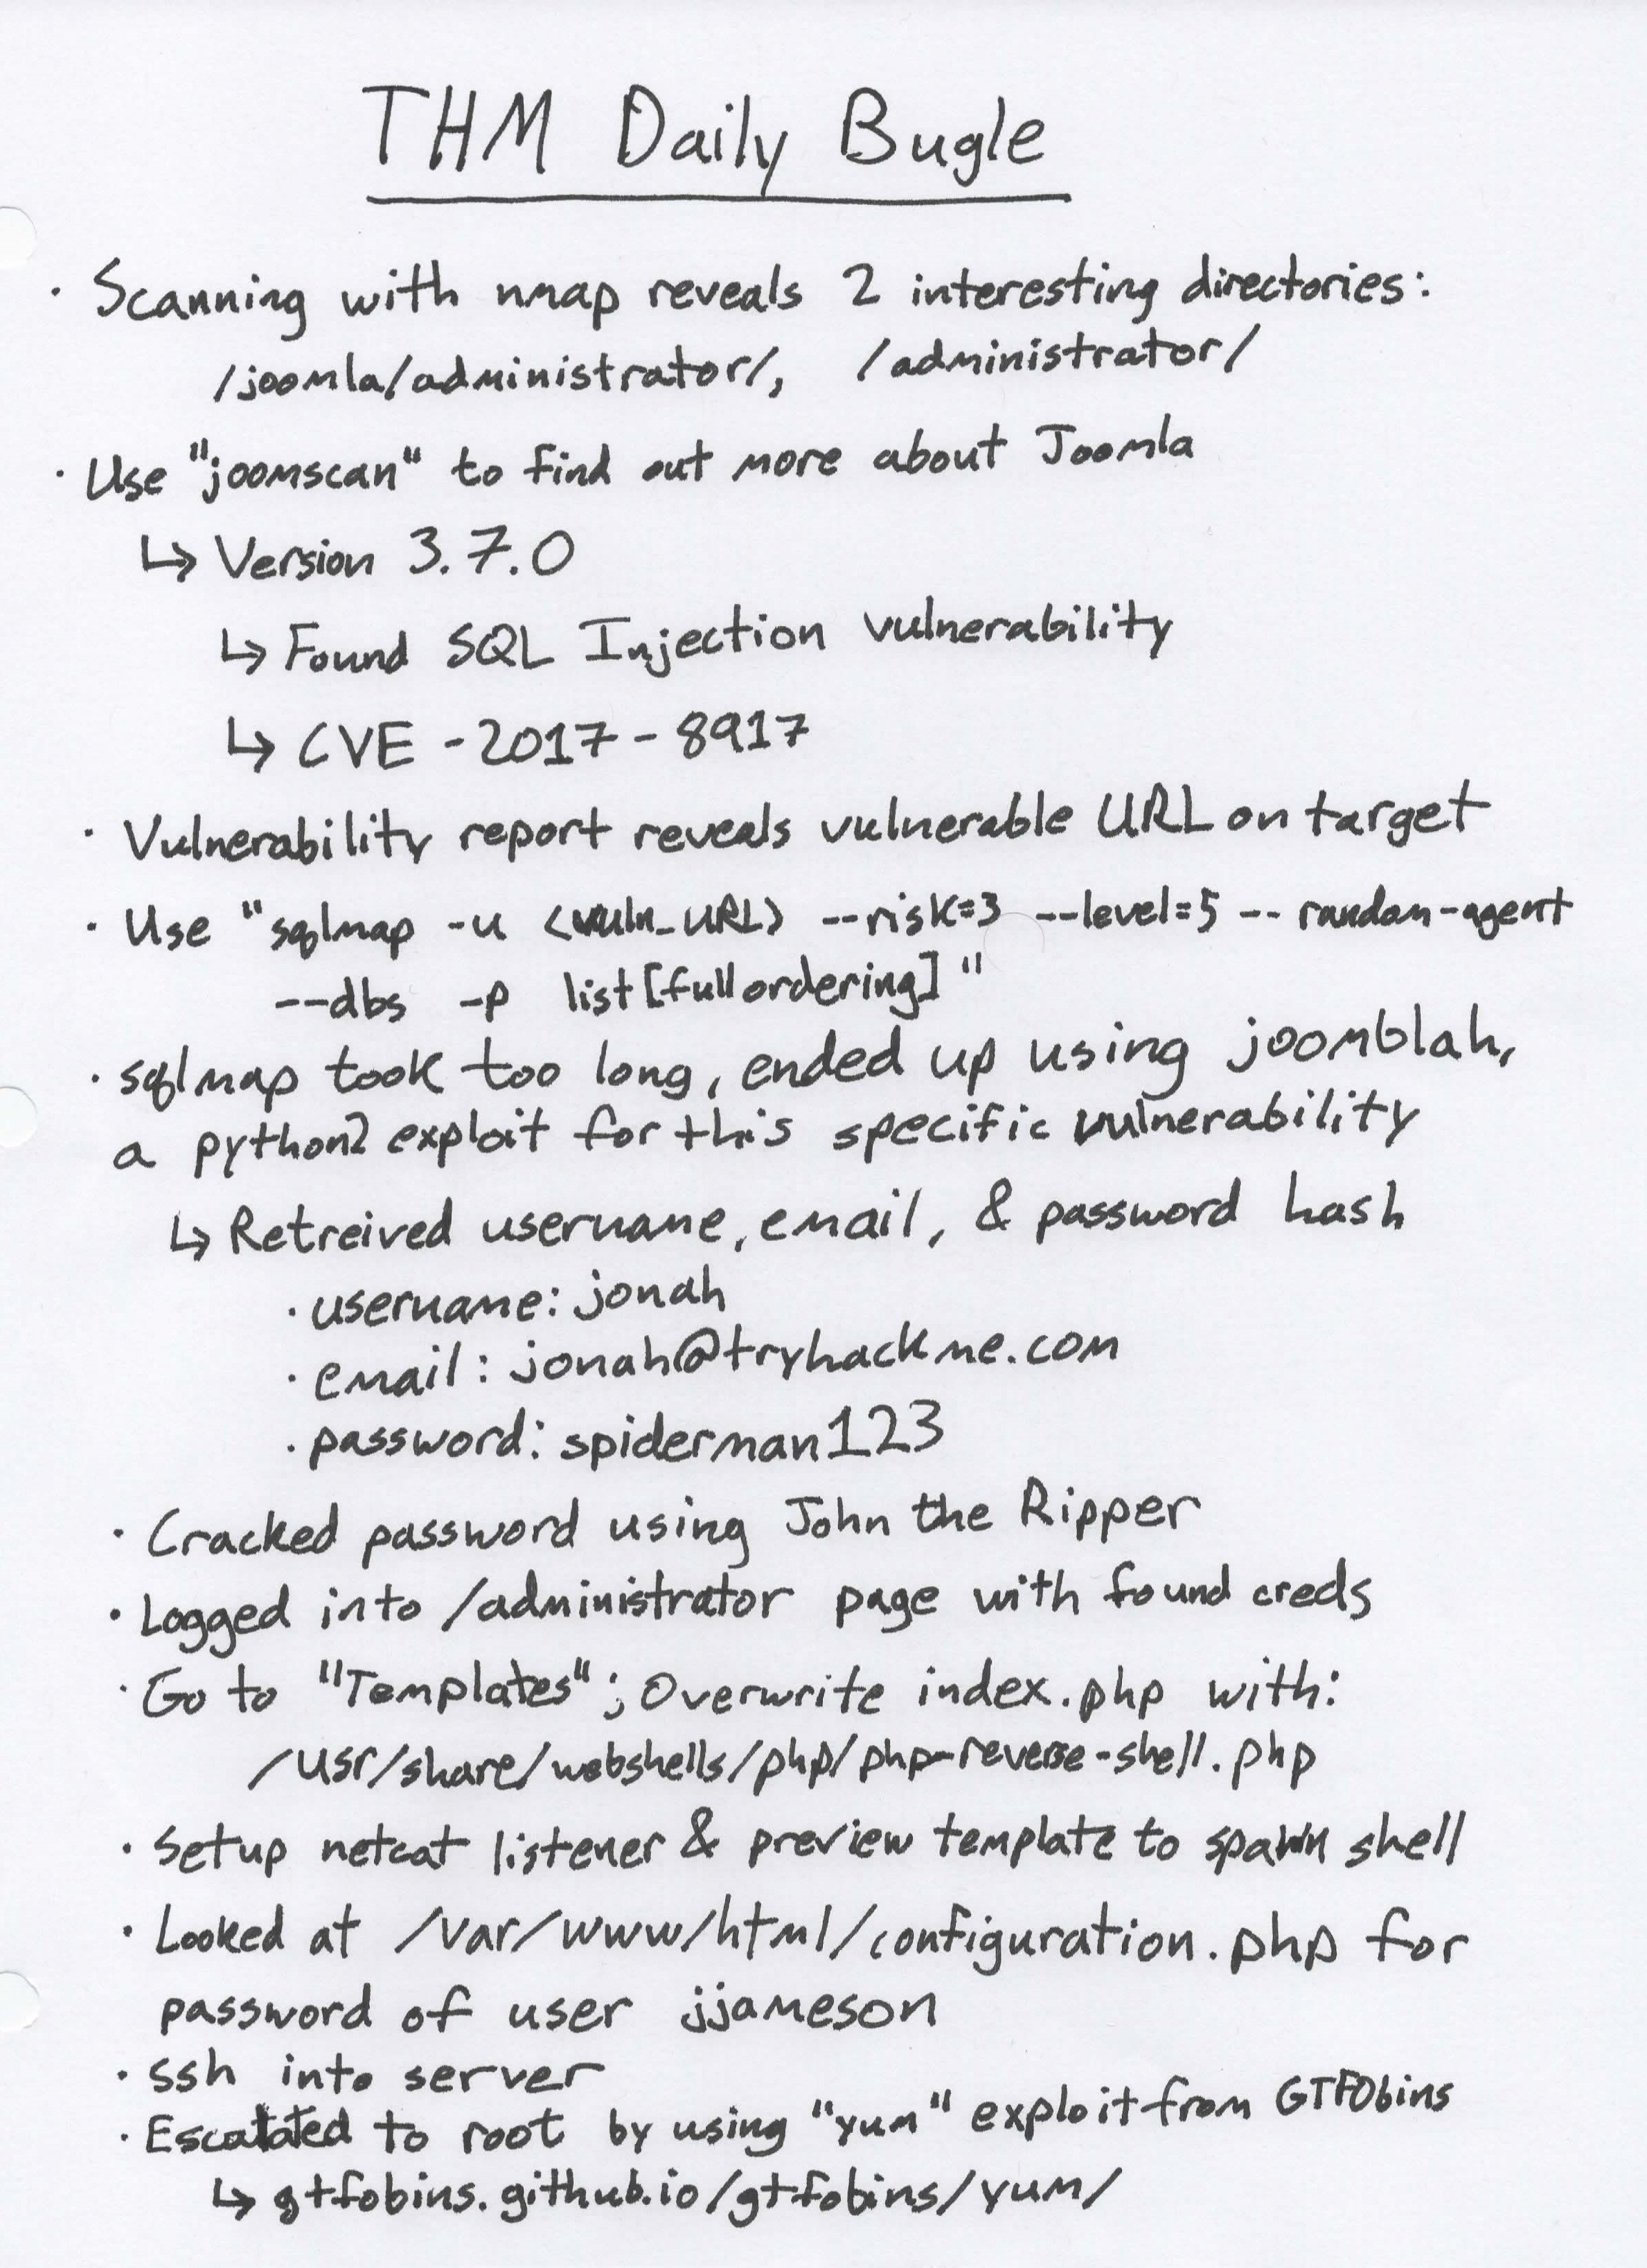 THM Daily Bugle
· Scanning with nmap reveals 2 interesting directories:
/joomla/administrator/, /administrator/
· Use "joomscan" to find out more about Joomla
↳ Version 3.7.0
↳ Found SQL Injection vulnerability
↳ CVE-2017-8917
· Vulnerability report reveals vulnerable URL on target
· Use "sqlmap -u <vuln_URL> --risk=3 --level=5 --random-agent
--dbs -p list[fullordering]"
· sqlmap took too long, ended up using joomblah,
a python2 exploit for this specific vulnerability
↳ Retreived username, email, & password hash
· username: jonah
· email: jonah@tryhackme.com
· password: spiderman123
· Cracked password using John the Ripper
· Logged into /administrator page with found creds
· Go to "Templates"; Overwrite index.php with:
/usr/share/webshells/php/php-reverse-shell.php
· Setup netcat listener & preview template to spawn shell
· Looked at /var/www/html/configuration.php for
password of user jjameson
· ssh into server
· Escalated to root by using "yum" exploit from GTFObins
↳ gtfobins.github.io/gtfobins/yum/